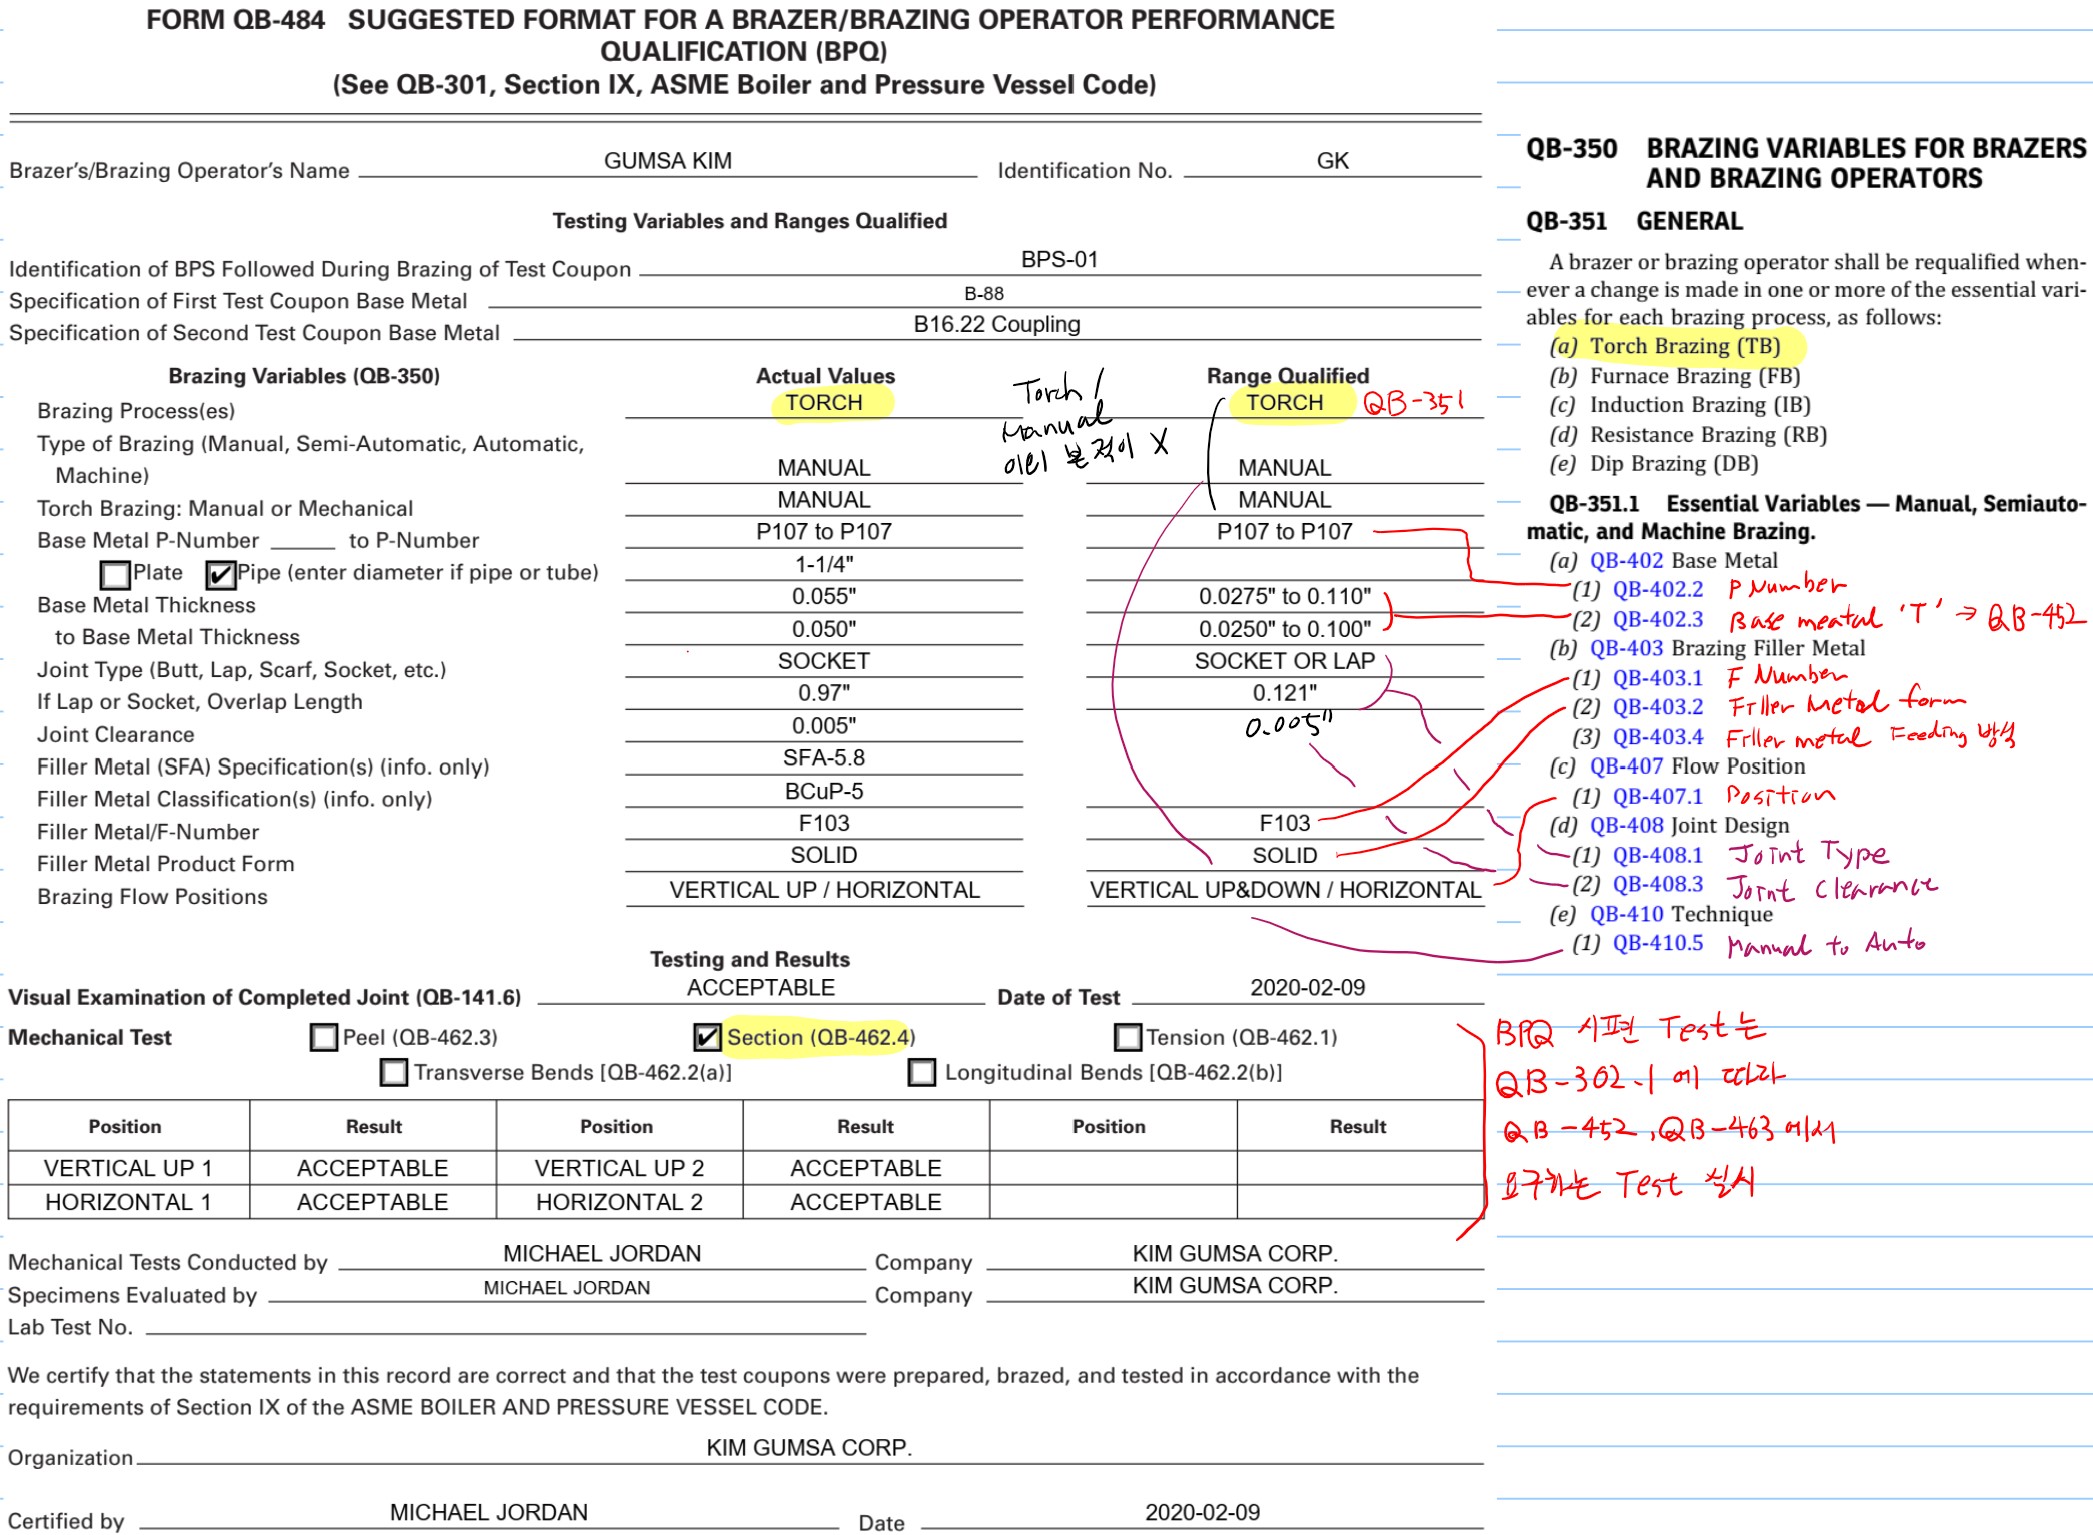 FORM QB-484 SUGGESTED FORMAT FOR A BRAZER/BRAZING OPERATOR PERFORMANCE
QUALIFICATION (BPQ)
(See QB-301, Section IX, ASME Boiler and Pressure Vessel Code)
Brazer's/Brazing Operator's Name GUMSA KIM Identification No. GK
Testing Variables and Ranges Qualified
Identification of BPS Followed During Brazing of Test Coupon BPS-01
Specification of First Test Coupon Base Metal B-88
Specification of Second Test Coupon Base Metal B16.22 Coupling
Brazing Variables (QB-350) Actual Values Range Qualified
Brazing Process(es) TORCH TORCH QB-351
Torch /
Manual
이리 본적이 X
Type of Brazing (Manual, Semi-Automatic, Automatic,
Machine) MANUAL MANUAL
Torch Brazing: Manual or Mechanical MANUAL MANUAL
Base Metal P-Number to P-Number P107 to P107 P107 to P107
Plate ✔ Pipe (enter diameter if pipe or tube) 1-1/4"
Base Metal Thickness 0.055" 0.0275" to 0.110"
to Base Metal Thickness 0.050" 0.0250" to 0.100"
Joint Type (Butt, Lap, Scarf, Socket, etc.) SOCKET SOCKET OR LAP
If Lap or Socket, Overlap Length 0.97" 0.121"
Joint Clearance 0.005" 0.005"
Filler Metal (SFA) Specification(s) (info. only) SFA-5.8
Filler Metal Classification(s) (info. only) BCuP-5
Filler Metal/F-Number F103 F103
Filler Metal Product Form SOLID SOLID
Brazing Flow Positions VERTICAL UP / HORIZONTAL VERTICAL UP&DOWN / HORIZONTAL
Testing and Results
Visual Examination of Completed Joint (QB-141.6) ACCEPTABLE Date of Test 2020-02-09
Mechanical Test Peel (QB-462.3) ✔ Section (QB-462.4) Tension (QB-462.1)
Transverse Bends [QB-462.2(a)] Longitudinal Bends [QB-462.2(b)]
Position Result Position Result Position Result
VERTICAL UP 1 ACCEPTABLE VERTICAL UP 2 ACCEPTABLE
HORIZONTAL 1 ACCEPTABLE HORIZONTAL 2 ACCEPTABLE
Mechanical Tests Conducted by MICHAEL JORDAN Company KIM GUMSA CORP.
Specimens Evaluated by MICHAEL JORDAN Company KIM GUMSA CORP.
Lab Test No.
We certify that the statements in this record are correct and that the test coupons were prepared, brazed, and tested in accordance with the
requirements of Section IX of the ASME BOILER AND PRESSURE VESSEL CODE.
Organization KIM GUMSA CORP.
Certified by MICHAEL JORDAN Date 2020-02-09
QB-350 BRAZING VARIABLES FOR BRAZERS
AND BRAZING OPERATORS
QB-351 GENERAL
A brazer or brazing operator shall be requalified when-
ever a change is made in one or more of the essential vari-
ables for each brazing process, as follows:
(a) Torch Brazing (TB)
(b) Furnace Brazing (FB)
(c) Induction Brazing (IB)
(d) Resistance Brazing (RB)
(e) Dip Brazing (DB)
QB-351.1 Essential Variables — Manual, Semiauto-
matic, and Machine Brazing.
(a) QB-402 Base Metal
(1) QB-402.2 P Number
(2) QB-402.3 Base meatal 'T' → QB-452
(b) QB-403 Brazing Filler Metal
(1) QB-403.1 F Number
(2) QB-403.2 Filler Metal form
(3) QB-403.4 Filler metal Feeding 방식
(c) QB-407 Flow Position
(1) QB-407.1 Position
(d) QB-408 Joint Design
(1) QB-408.1 Joint Type
(2) QB-408.3 Joint Clearance
(e) QB-410 Technique
(1) QB-410.5 Manual to Auto
BPQ 시편 Test는
QB-302.1 에 따라
QB-452, QB-463에서
요구하는 Test 실시